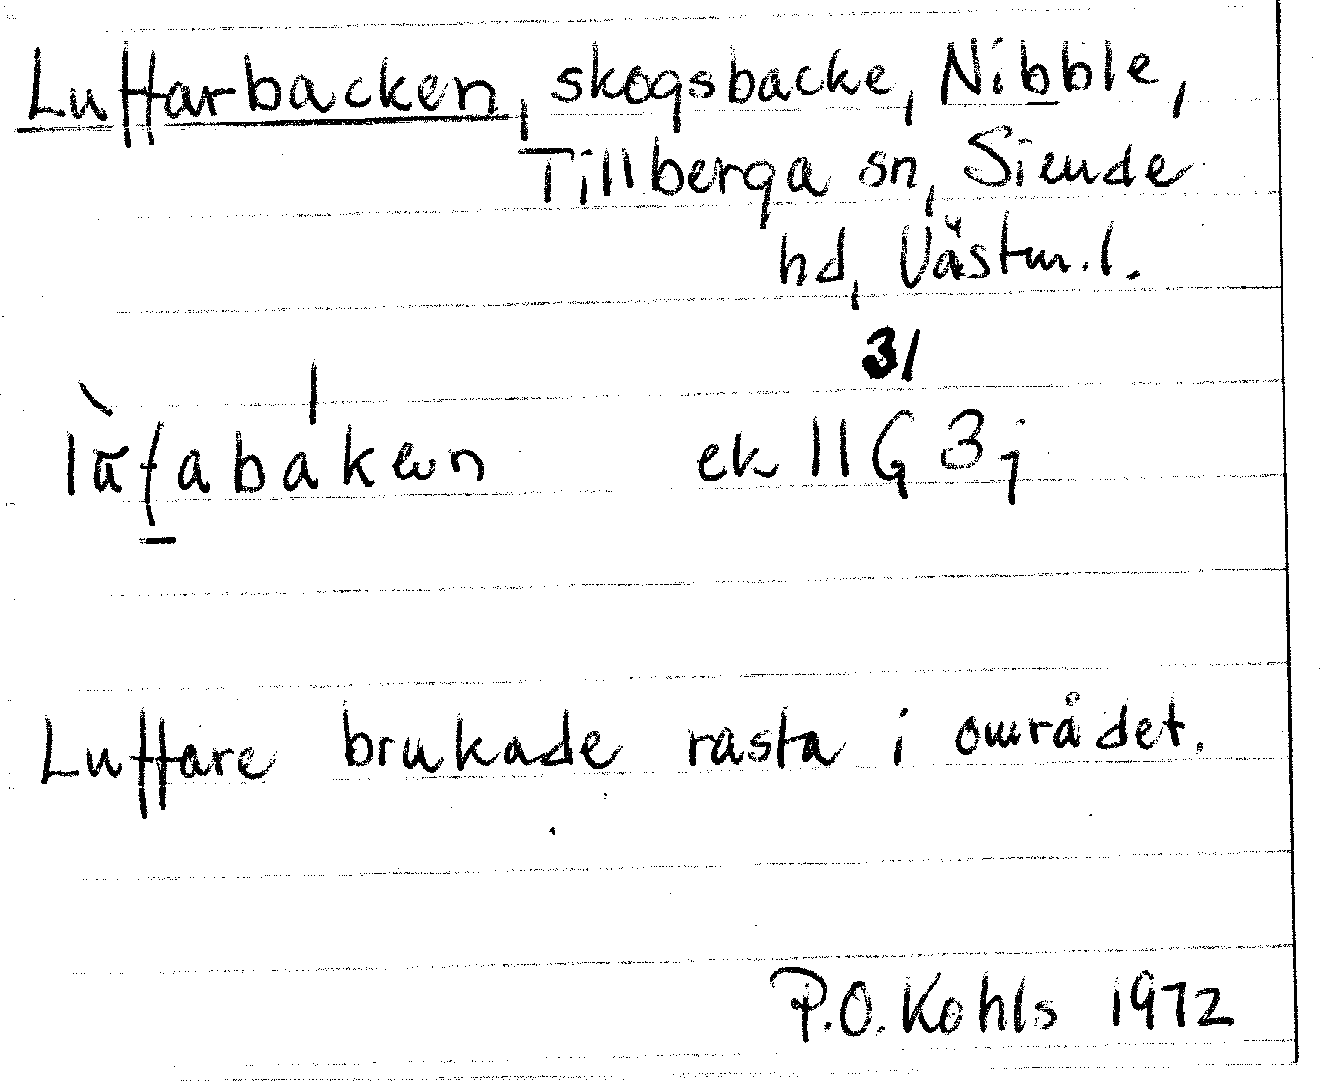 Luffarbacken, skogsbacke, Nibble,
Tillberga sn, Siende
hd, Västm.l.
31
ek 11G 3j
Luffare brukade rasta i området.
P.O. Kohls 1972